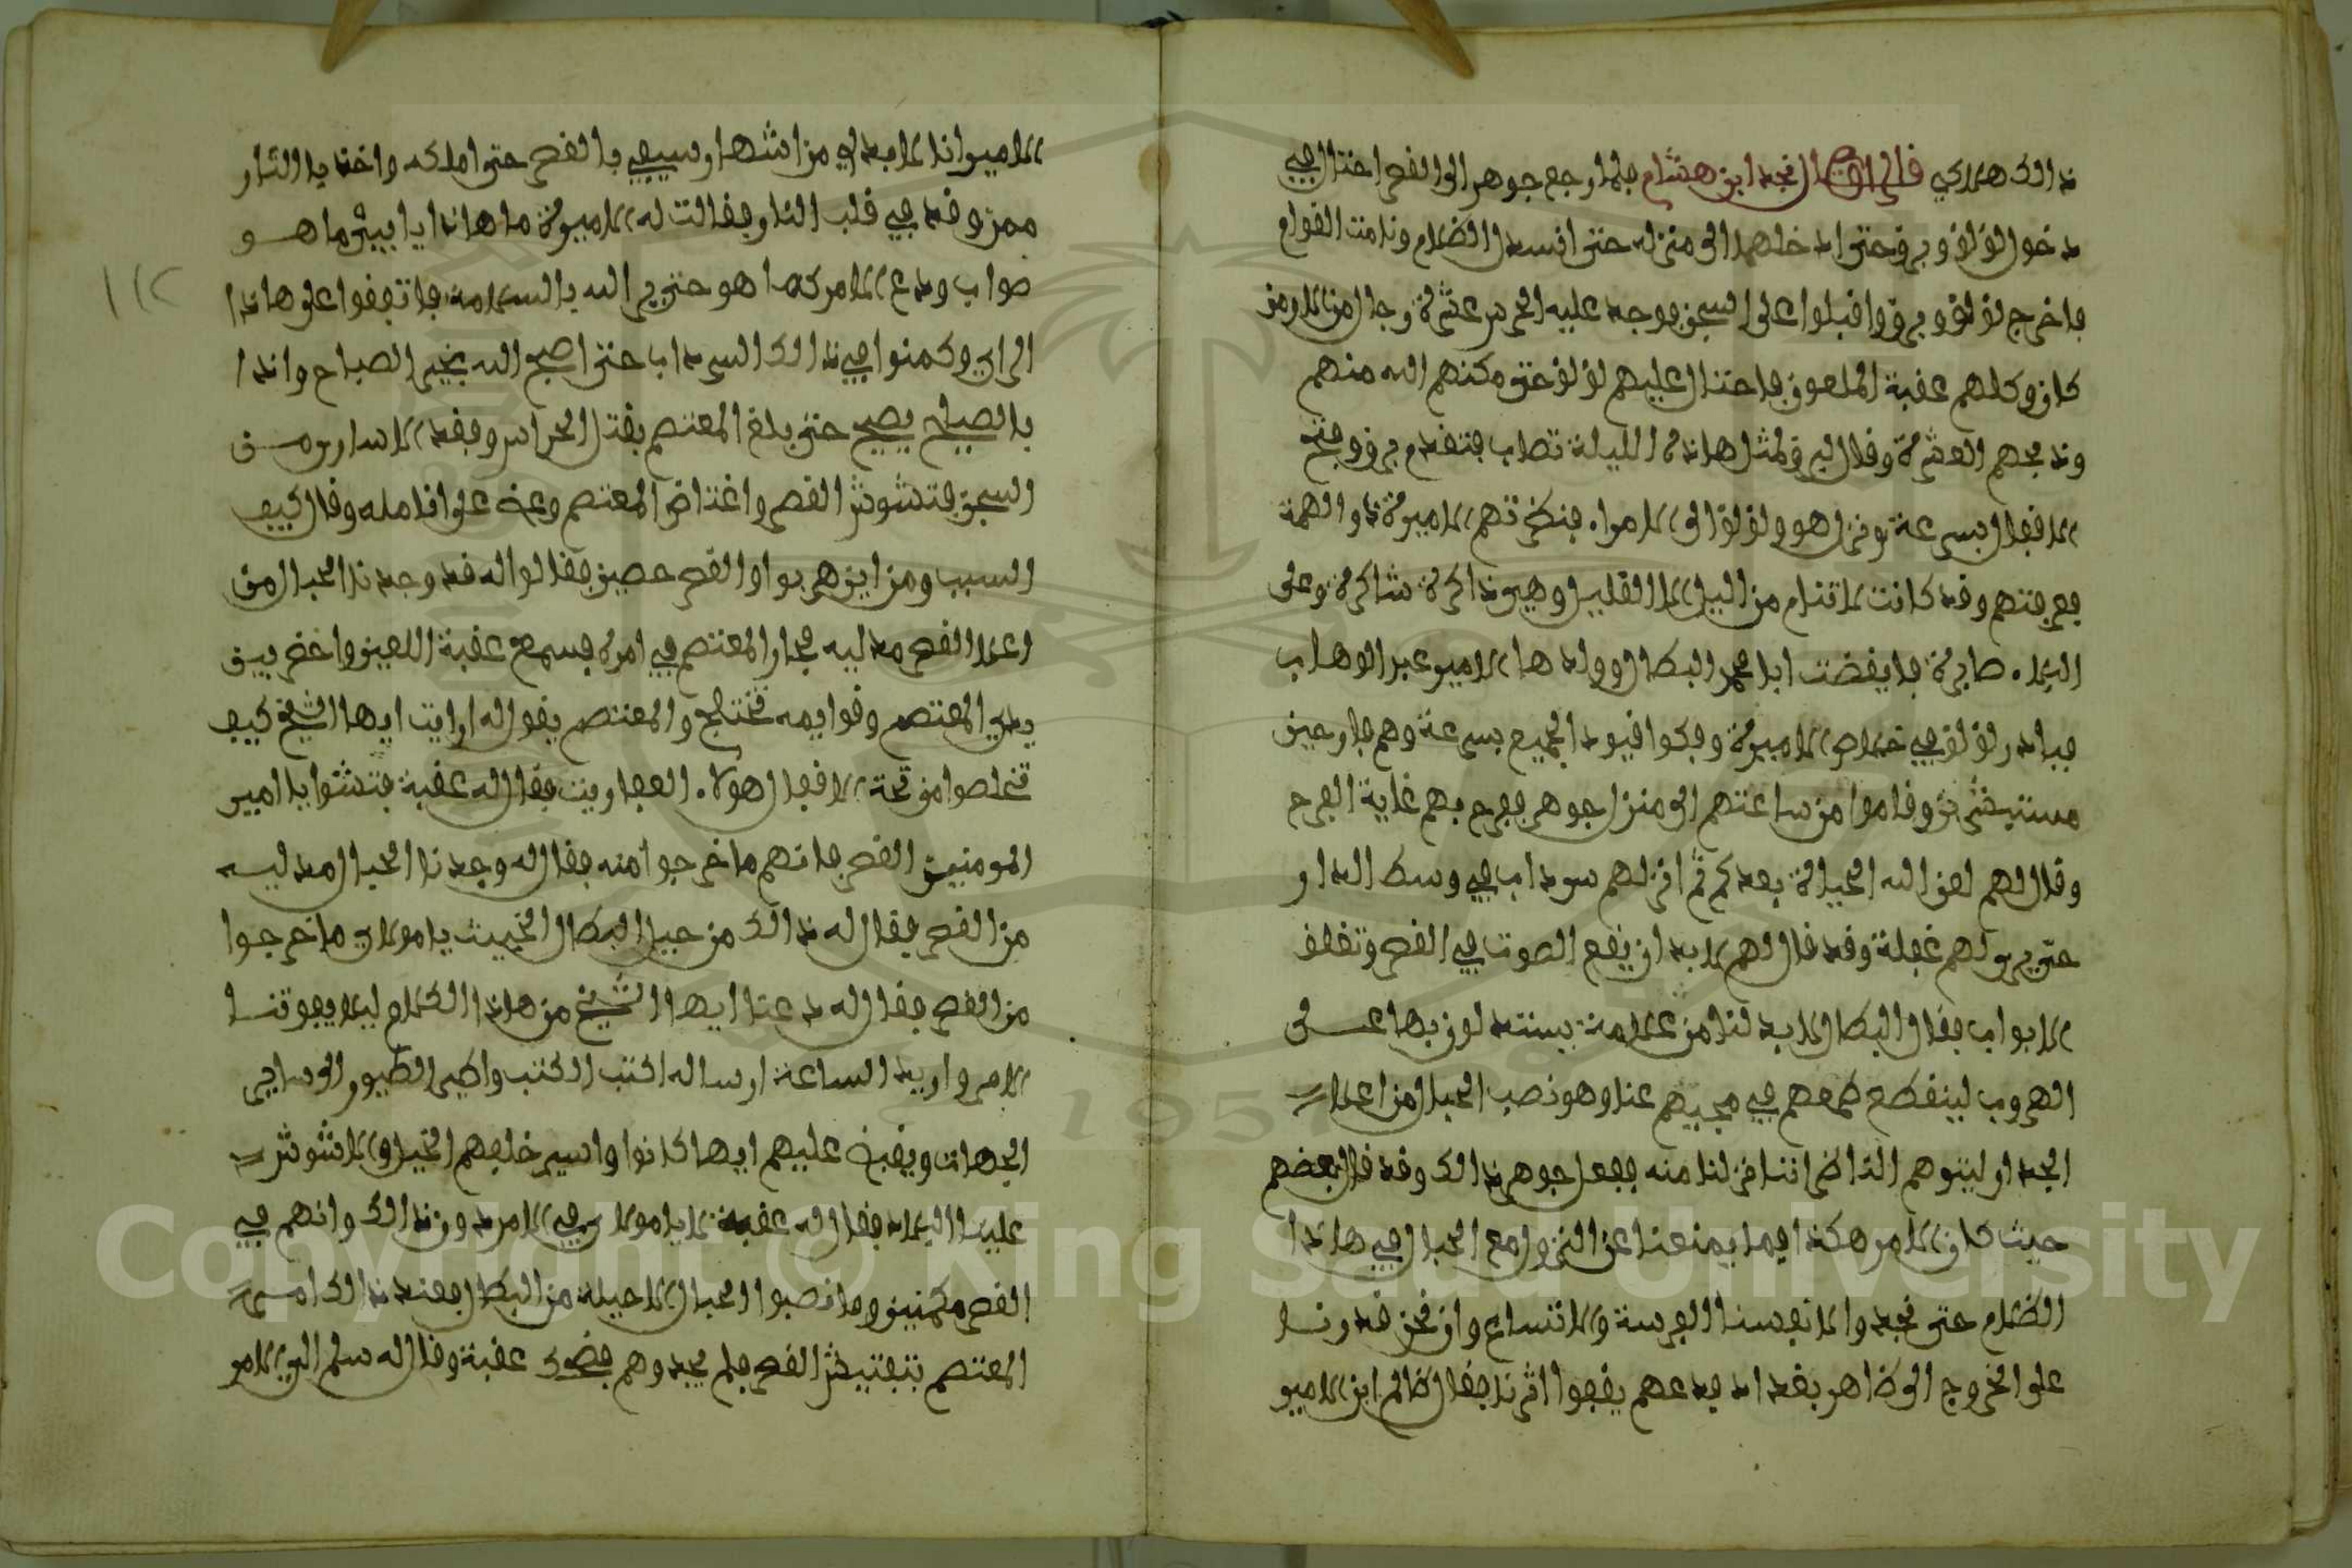 ذالك هلاكي قال الراوي نجد ابن هشام فلما رجع جوهر الى القصر احتال في
دخول لؤلؤ وبرق حتى ادخلهما الى منزله حتى انسدل الظلام ونامت القوام
فاخرج لؤلؤ وبرق واقبلوا على السجن فوجد عليه الحرس عشرة رجال من الارمن
كان وكلهم عقبة الملعون فاحتال عليهم لؤلؤ حتى مكنهم الله منهم
وذبحهم العشرة وقال البرق لمثل هاذه الليلة تصاب فتقدم برق وفتح
الاقفال بسرعة ونزل هو ولؤلؤ الى الامراء فنظرتهم الاميرة ذو الهمة
فعرفتهم وقد كانت لا تنام من اليل الا القليل وهي ذاكرة شاكرة وعلى
البلاء صابرة فايقضت ابا محمد البطال وولدها الامير عبد الوهاب
فبادر لؤلؤ في خلاص الاميرة وفكوا قيود الجميع بسرعة وهم فارحين
مستبشرين وقاموا من ساعتهم الى منزل جوهر ففرح بهم غاية الفرح
وقال لهم لعن الله الحيالة بعدكم ثم انزلهم سرداب في وسط الدار
حتى يرى لهم غفلة وقد قال لهم لابد ان يقع الصوت في القصر وتغلق
الابواب فقال البطال لابد لنا من علامة يستدلون بها على
الهروب لينقطع طمعهم في مجيهم عنا وهو نصب الحبال من اعلا
الجدار ليتوهم الناظر اننا نزلنا منه ففعل جوهر ذالك وقد قال بعضهم
حيث كان الامر هكذا فما يمنعنا عن النزول مع الحبال في هاذا
الظلام حتى نجدوا لانفسنا الفرصة والاتساع وان نحن قدرنا
على الخروج الى ظاهر بغداد فدعهم يقفوا اثرنا فقال ظالم ابن الامير
الامير انا لابد لي من اشهار سيفي بالقصر حتى املكه واخذ بالثار
ممن وقد في قلب النار فقالت له الاميرة ما هاذا يا بيش ما هو
صواب ودع الامر كما هو حتى يرى الله بالسلامة فاتفقوا على هاذا
الراي وكمنوا في ذالك السرداب حتى اصبح الله بخير الصباح واذا
بالصياح يصيح حتى بلغ المعتصم بقتل الحراس وفقد الاسارى من
السجن فتشوش القصر واغتاض المعتصم وعض على انامله وقال كيف
السبب ومن اين هربوا والقصر حصين فقالوا له قد وجدنا الحبال من
اعلا القصر مدليه فحار المعتصم في امره فسمع عقبة اللعين واحضر بين
يدي المعتصم وقوايمه تختلج والمعتصم يقول له ارايت ايها الشيخ كيف
تخلصوا من تحت الاقفال هولاء العفاريت فقال له عقبة فتشوا يا امير
المومنين القصر فانهم ما خرجوا منه فقال له وجدنا الحبال مدليه
من القصر فقال له ذالك من حيل البطال الخبيث يا مولاي ما خرجوا
من القصر فقال له دعنا ايها الشيخ من هاذا الكلام ليلا يفوتنا
الامر واريد الساعة ارساله اكتب الكتب واطير الطيور الى ساير
الجهات ويقبض عليهم ايها كانوا واسير خلفهم الخيل والا نشوش
علينا البلاد فقال له عقبة لا يا مولاي في الامر دون ذالك وانهم في
القصر مكمنين وما نصبوا الحبال الا حيلة من البطال فعند ذالك امر
المعتصم بتفتيش القصر فلم يجدوهم فضحك عقبة وقال له سلم الي الامر
١١٢
Copyright © King Saud University
1957